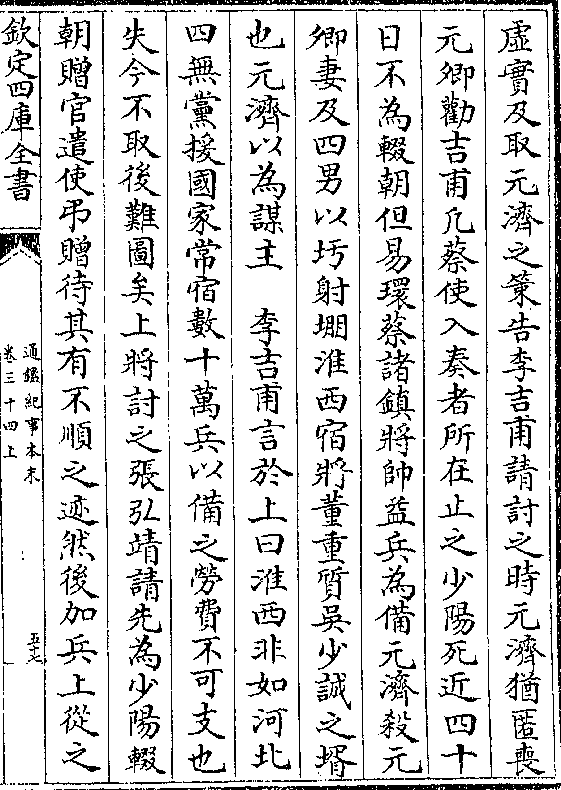 虛實及取元濟之策告李吉甫請討之時元濟猶匿喪
元卿勸吉甫凡蔡使入奏者所在止之少陽死近四十
日不為輟朝但易環蔡諸鎮將帥益兵為備元濟殺元
卿妻及四男以圬射堋淮西宿將董重質吳少誠之壻
也元濟以為謀主　李吉甫言於上曰淮西非如河北
四無黨援國家常宿數十萬兵以備之勞費不可支也
失今不取後難圖矣上將討之張弘靖請先為少陽輟
朝贈官遣使弔贈待其有不順之迹然後加兵上從之
欽定四庫全書
通鑑紀事本末
卷三十四上
五十七